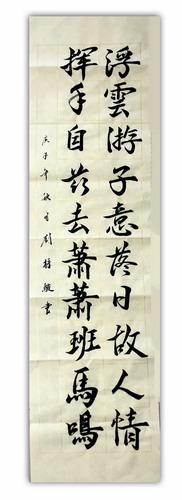 浮雲游子意落日故人情
揮手自茲去蕭蕭班馬鳴
庚子年秋月劉書